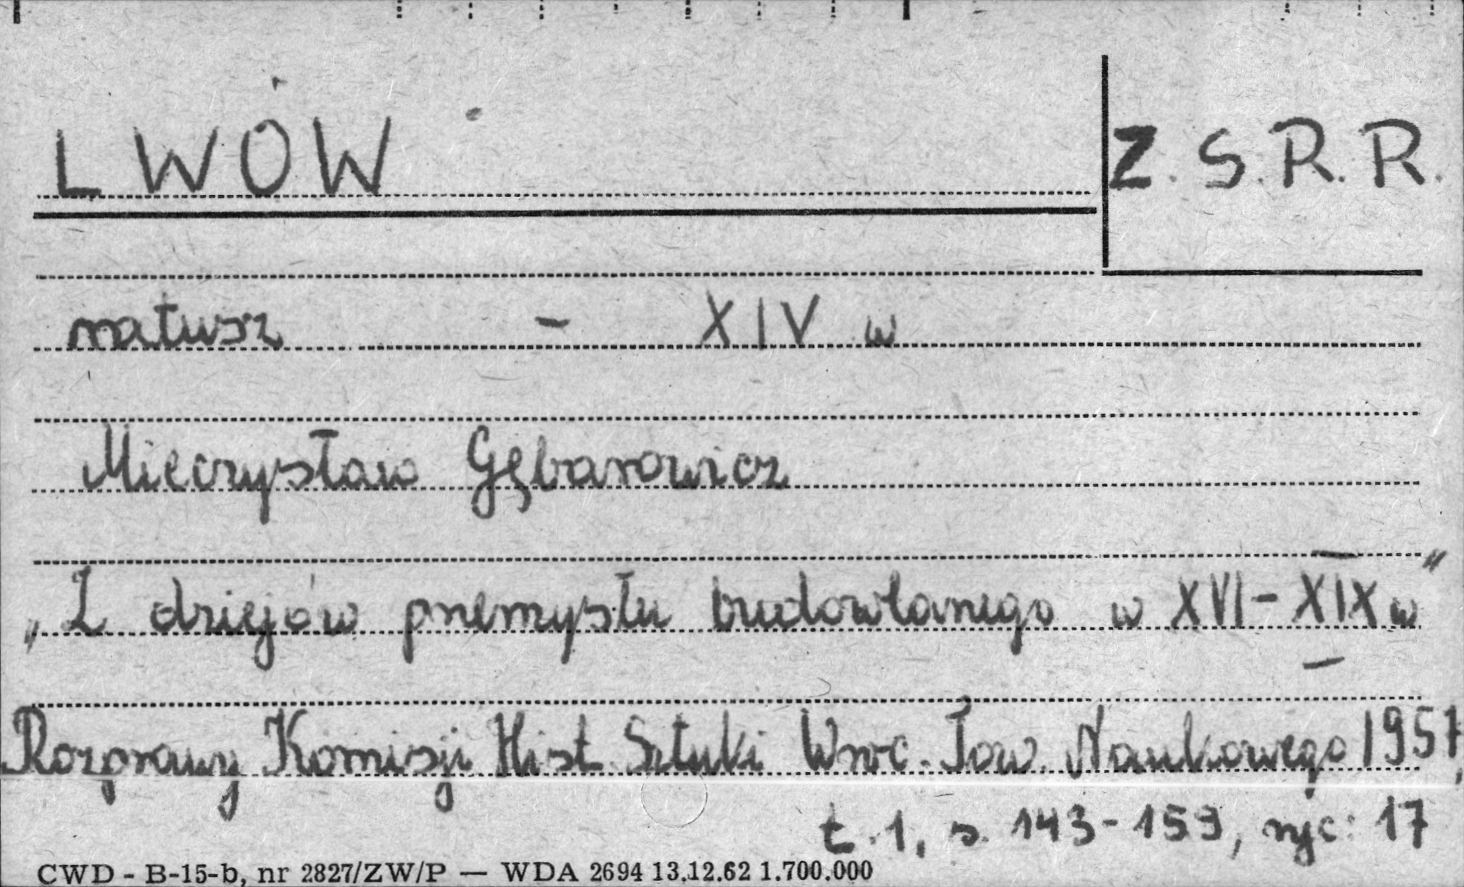 LWÓW
Z.S.R.R.
ratusz - XIV w
Mieczysław Gębarowicz
„Z dziejów przemysłu budowlanego w XVI-XIX w"
Rozprawy Komisji Hist. Sztuki Wroc. Tow. Naukowego 1957,
t. 1, s. 143-159, ryc: 17
CWD - B-15-b, nr 2827/ZW/P — WDA 2694 13.12.62 1.700.000